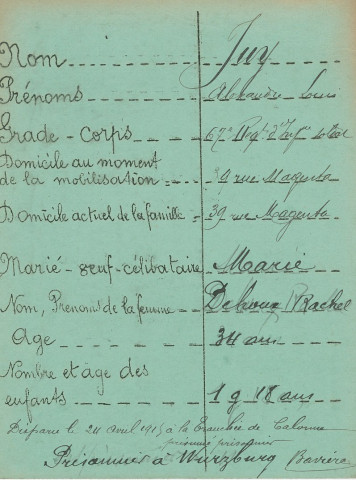 Nom Juy
Prénoms Alexandre Louis
Grade - Corps 67e Rgt d'Inf
Domicile au moment
de la mobilisation 39 rue Magenta
Domicile actuel de la famille 39 rue Magenta
Marié - veuf - célibataire Marié
Nom, Prénoms de la femme Rachel
Age 34 ans
Nombre et âge des
enfants 1 g 18 ans
Disparu le 24 avril 1915 à la Tranchée de Calonne
présumé prisonnier
Prisonnier à Wurzburg Bavière